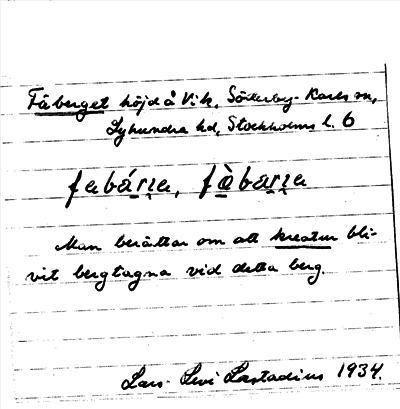 Fäberget höjd å V:h, Söderby-Karls sn,
Lyhundra hd, Stockholms l. 6
fabári̯a, fàbari̯a
Man berättar om att kreatur bli-
vit bergtagna vid detta berg.
Lars-Levi Læstadius 1934.